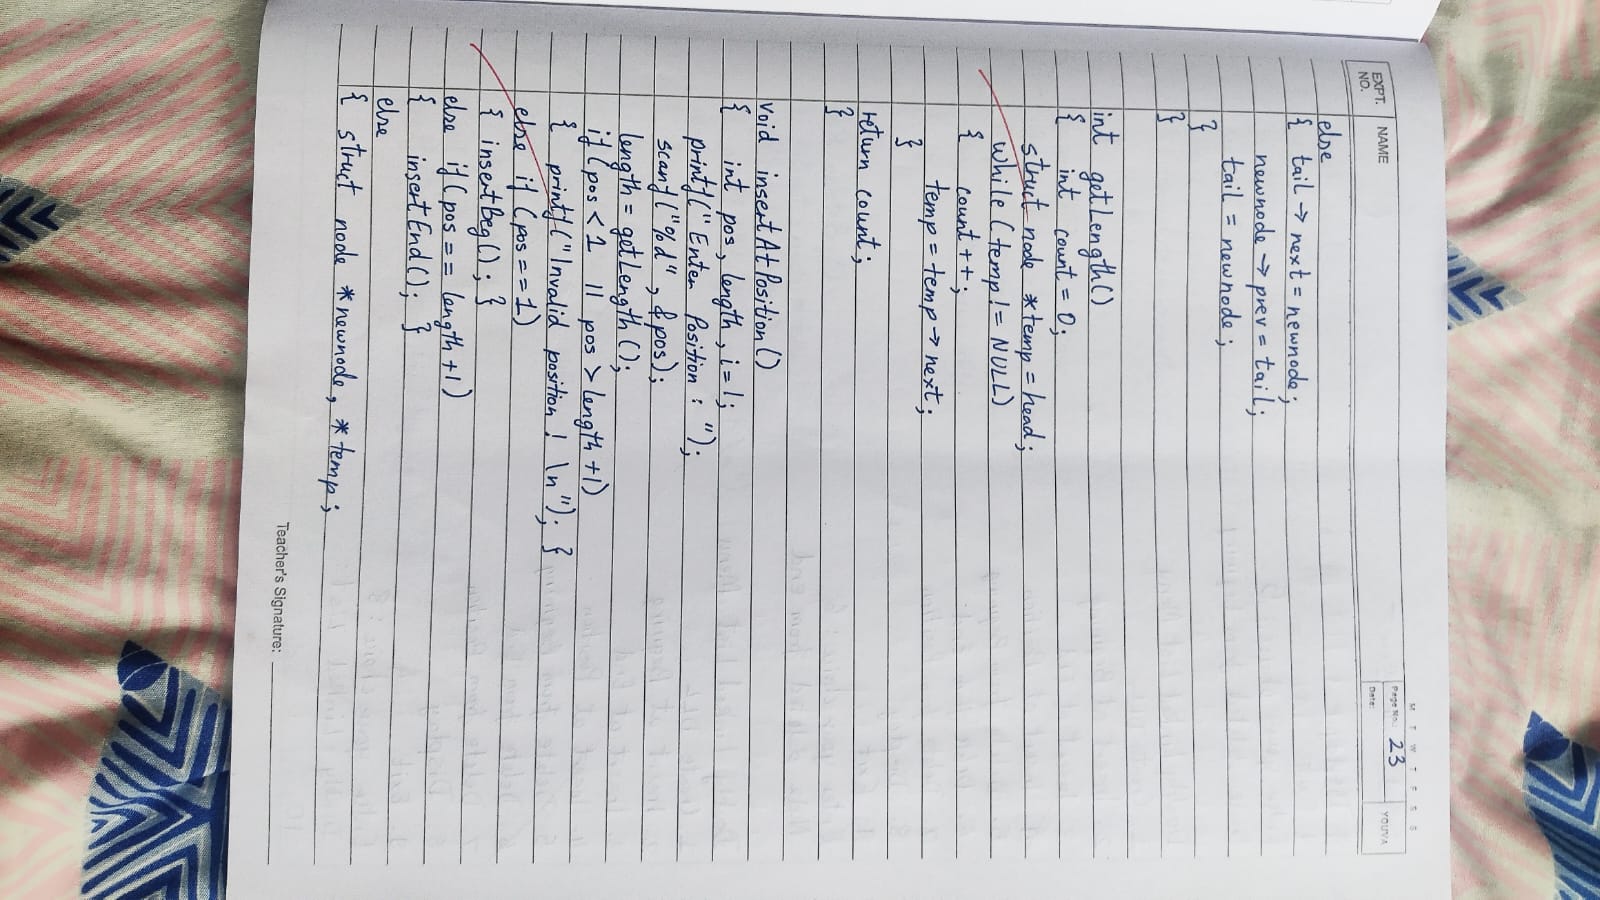 EXPT. NO.
NAME
M T W T F S S
Page No.: 23
Date:
YOUVA
else
{ tail → next = newnode;
newnode → prev = tail;
tail = newnode;
}
}
int getLength()
{ int count = 0;
struct node *temp = head;
while (temp != NULL)
{ count ++;
temp = temp → next;
}
return count;
}
void insertAtPosition()
{ int pos, length, i=1;
printf("Enter Position : ");
scanf("%d", &pos);
length = getLength();
if (pos < 1 || pos > length +1)
{ printf("Invalid position ! \n"); }
else if (pos == 1)
{ insertBeg(); }
else if (pos == length +1)
{ insertEnd(); }
else
{ struct node *newnode, *temp;
Teacher's Signature: